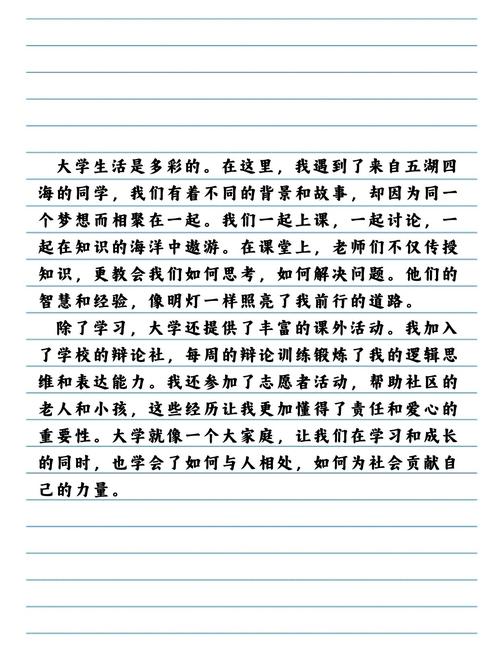 大学生活是多彩的。在这里，我遇到了来自五湖四
海的同学，我们有着不同的背景和故事，却因为同一
个梦想而相聚在一起。我们一起上课，一起讨论，一
起在知识的海洋中遨游。在课堂上，老师们不仅传授
知识，更教会我们如何思考，如何解决问题。他们的
智慧和经验，像明灯一样照亮了我前行的道路。
除了学习，大学还提供了丰富的课外活动。我加入
了学校的辩论社，每周的辩论训练锻炼了我的逻辑思
维和表达能力。我还参加了志愿者活动，帮助社区的
老人和小孩，这些经历让我更加懂得了责任和爱心的
重要性。大学就像一个大家庭，让我们在学习和成长
的同时，也学会了如何与人相处，如何为社会贡献自
己的力量。